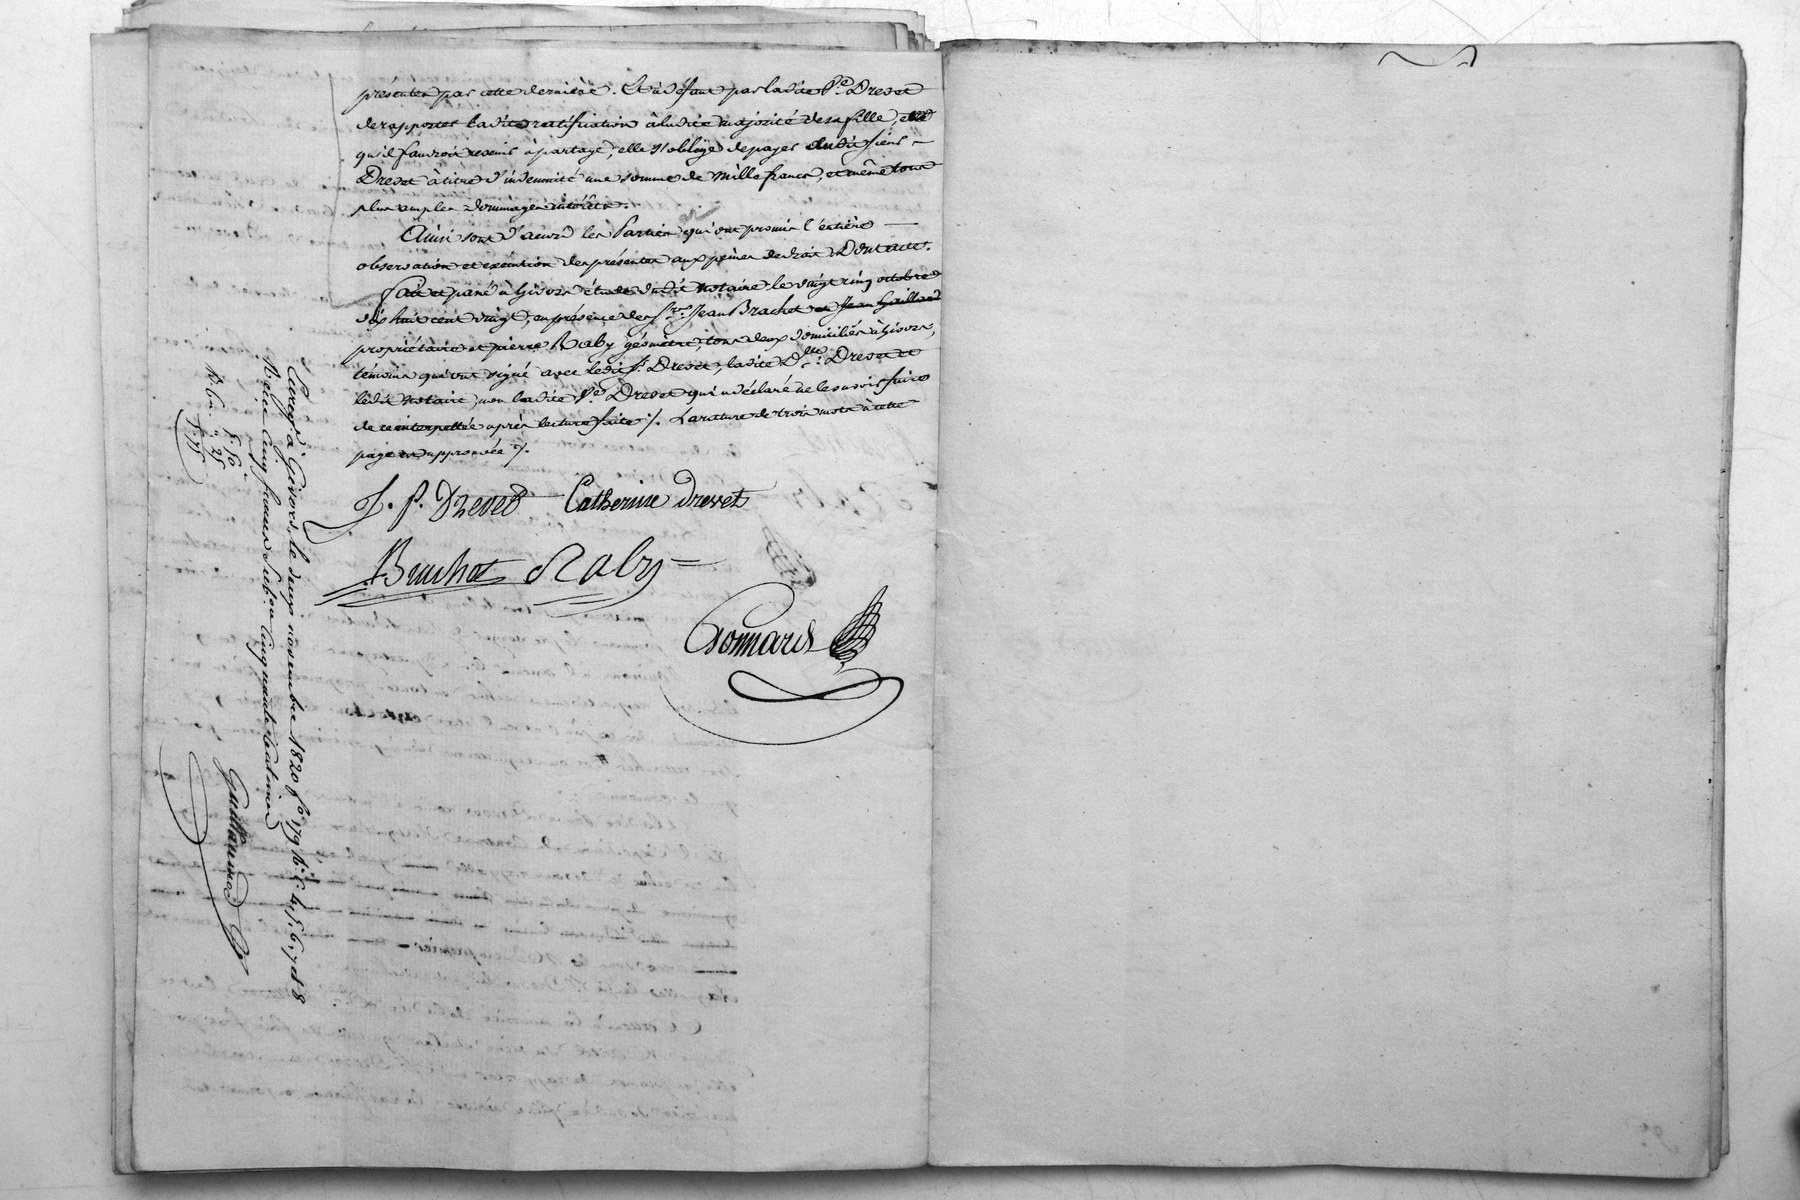 présenter par cette dernière. Et à défaut par ladite Ve. Drevet
de rapporter ladite ratification à ladite majorité de sa fille, et
qu'il faudroit revenir à partage, elle s'oblige de payer audit sieur
Drevet à titre d'indemnité une somme de mille francs, et même tous
plus amples dommages intérêts.
Ainsi sont d'accord les Parties qui ont promis l'entière
observation et exécution des présentes aux peines de droit Dont acte.
fait et passé à Givors étude dudit Notaire le vingt cinq octobre
dix huit cent vingt, en présence des Srs. Jean Brachet et Jean Gaillard
propriétaire et pierre Raby géomètre, tous deux domiciliés à Givors,
témoins qui ont signé avec ledit Sr. Drevet, ladite Dlle. Drevet et
ledit Notaire, non ladite Ve. Drevet qui a déclaré ne le savoir faire
de ce interpellée après lecture faite ./. La rature de trois mots à cette
page est approuvée ./.
J. P. Drevet Catherine Drevet
Brachet Raby
Gonnard
Enregé. à Givors, le deux novembre 1820 fo. 179 Ro. C. 4, 5, 6, 7 et 8
Reçu cinq francs Subon. cinquante centimes
Guillaume
5. 50.
25
5. 75